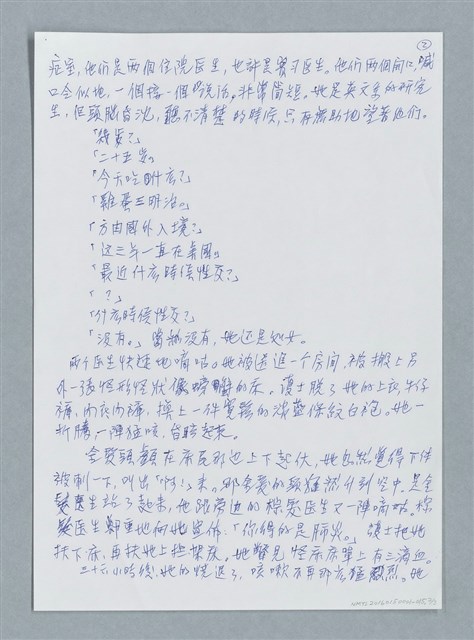 ②
症室，他们是两個住院医生，也許是實习医生。他们两個向口喊
口令似地，一個接一個的說话，非常简短。她是英文系的研究
生，但頭脑昏沈，聽不清楚的時候，只有無助地望着他们。
「幾歲？」
「二十五岁。」
「今天吃了什么？」
「雞蛋三明治。」
「方由国外入境？」
「这三年一直在美国。」
「最近什么時侯性交？」
「？」
「什么時侯性交？」
「没有。」當然没有，她还是处女。
两个医生快速地嘀咕。她被送進一个房间，被搬上另
外一張怪形怪狀像螃蟹的床。護士脱了她的上衣，牛仔
褲，内衣内褲，換上一件寬鬆的淡藍條紋白袍。她一
折騰，一陣猛咳，昏睡起来。
金髮頭顱在床尾那边上下起伏，她忽然覺得下体
被刺一下，叫出「啊！」来。那金髮的頭猛然升到空中，是金
髮医生站了起来，他跟旁边的棕髮医生又一陣嘀咕。棕
髮医生鄭重地向她宣佈：「你得的是肺炎。」護士把她
扶下床，再扶她上担架床，她瞥見怪床床單上有三滴血。
三十六小時後，她的燒退了，咳嗽不再那么猛烈。她